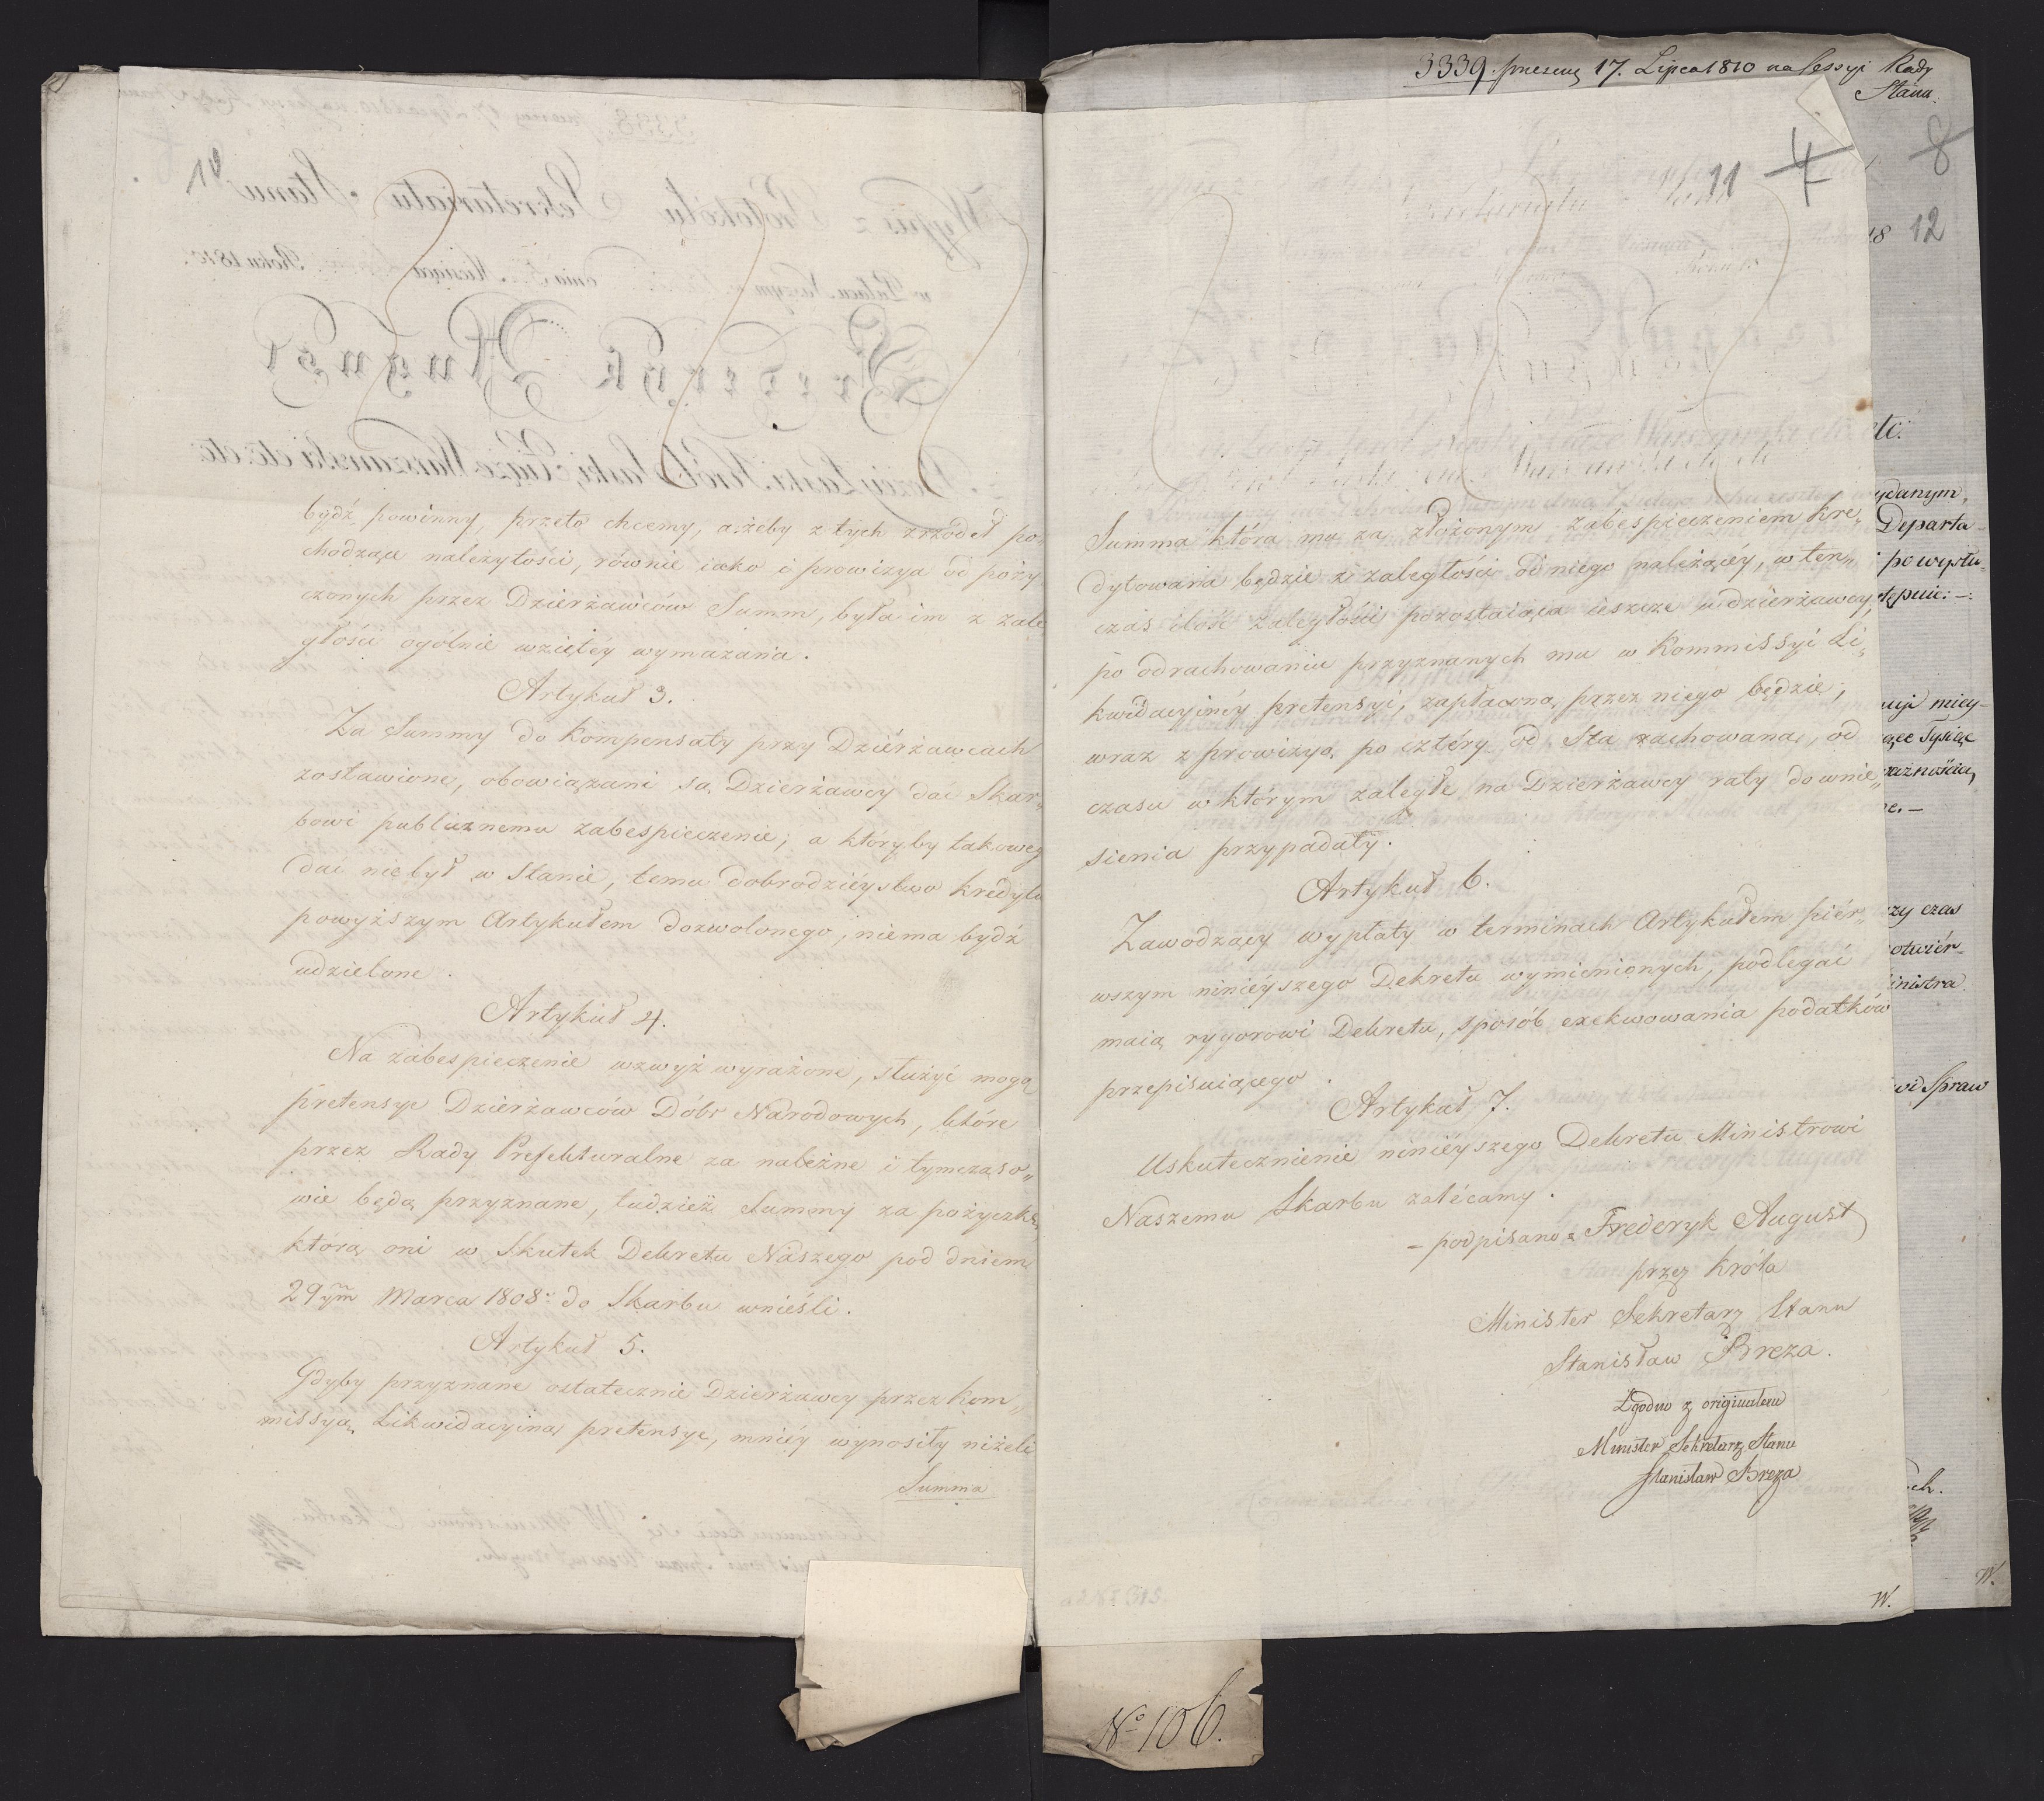 bydź powinny, przeto chcemy, ażeby z tych zrzódeł po„
chodzące należytości, równie iako i prowizya od poży
czonych przez Dzierżawców Summ, była im z zale
głości ogólnie wziętéy wymazana.
Artykuł 3.
Za Summy do kompensaty przy Dziérżawcach
zostawione, obowiązani są Dzierżawcy dać Skar„
bowi publicznemu zabespieczenie; a któryby takoweg
dać niebył w stanie, temu dobrodziéystwo kredytu
powyższym Artykułem dozwolonego, niema bydź
udzielone.
Artykuł 4.
Na zabespieczenie wzwyż wyrażone, służyć mogą
pretensye Dzierżawców Dóbr Narodowych, które
przez Rady Prefekturalne za należne i tymczaso„
wie będą przyznane, tudzież Summy za pożyczkę,
którą oni w Skutek Dekretu Naszego pod dniem
29ym Marca 1808. do Skarbu wnieśli.
Artykuł 5.
Gdyby przyznane ostatecznie Dzierżawcy przez Kom„
missyą Likwidacyiną pretensye, mniéy wynosiły niżeli
Summa
3339. 17. Lipca 1810 na Sessyi Rady
Stanu.
11 4
8
12
Summa która mu za złożonym zabespieczeniem kre„
dytowana będzie z zaległości od niego należącéy, w ten„
czas ilość zaległości pozostaiąca ieszcze u dzierżawcy,
po odrachowaniu przyznanych mu w Kommissyi Li„
kwidacyinéy pretensyi, zapłacona przez niego będzie,
wraz z prowizyą po cztéry od Sta rachowaną, od
czasu w którym zaległe na Dzierżawcy raty do wnie„
sienia przypadały.
Artykuł 6.
Zawodzący wypłaty w terminach Artykułem piér„
wszym niniéyszego Dekretu wymienionych, podlegać
maią rygorowi Dekretu, sposób exekwowania podatków
przepisuiącego.
Artykuł 7.
Uskutecznienie niniéyszego Dekretu Ministrowi
Naszemu Skarbu zalécamy.
– podpisano – Frederyk August
przez Króla
Minister Sekretarz Stanu
Stanisław Breza.
Zgodno z originałem
Minister Sekretarz Stanu
Stanisław Breza
W.
W.
No 106.